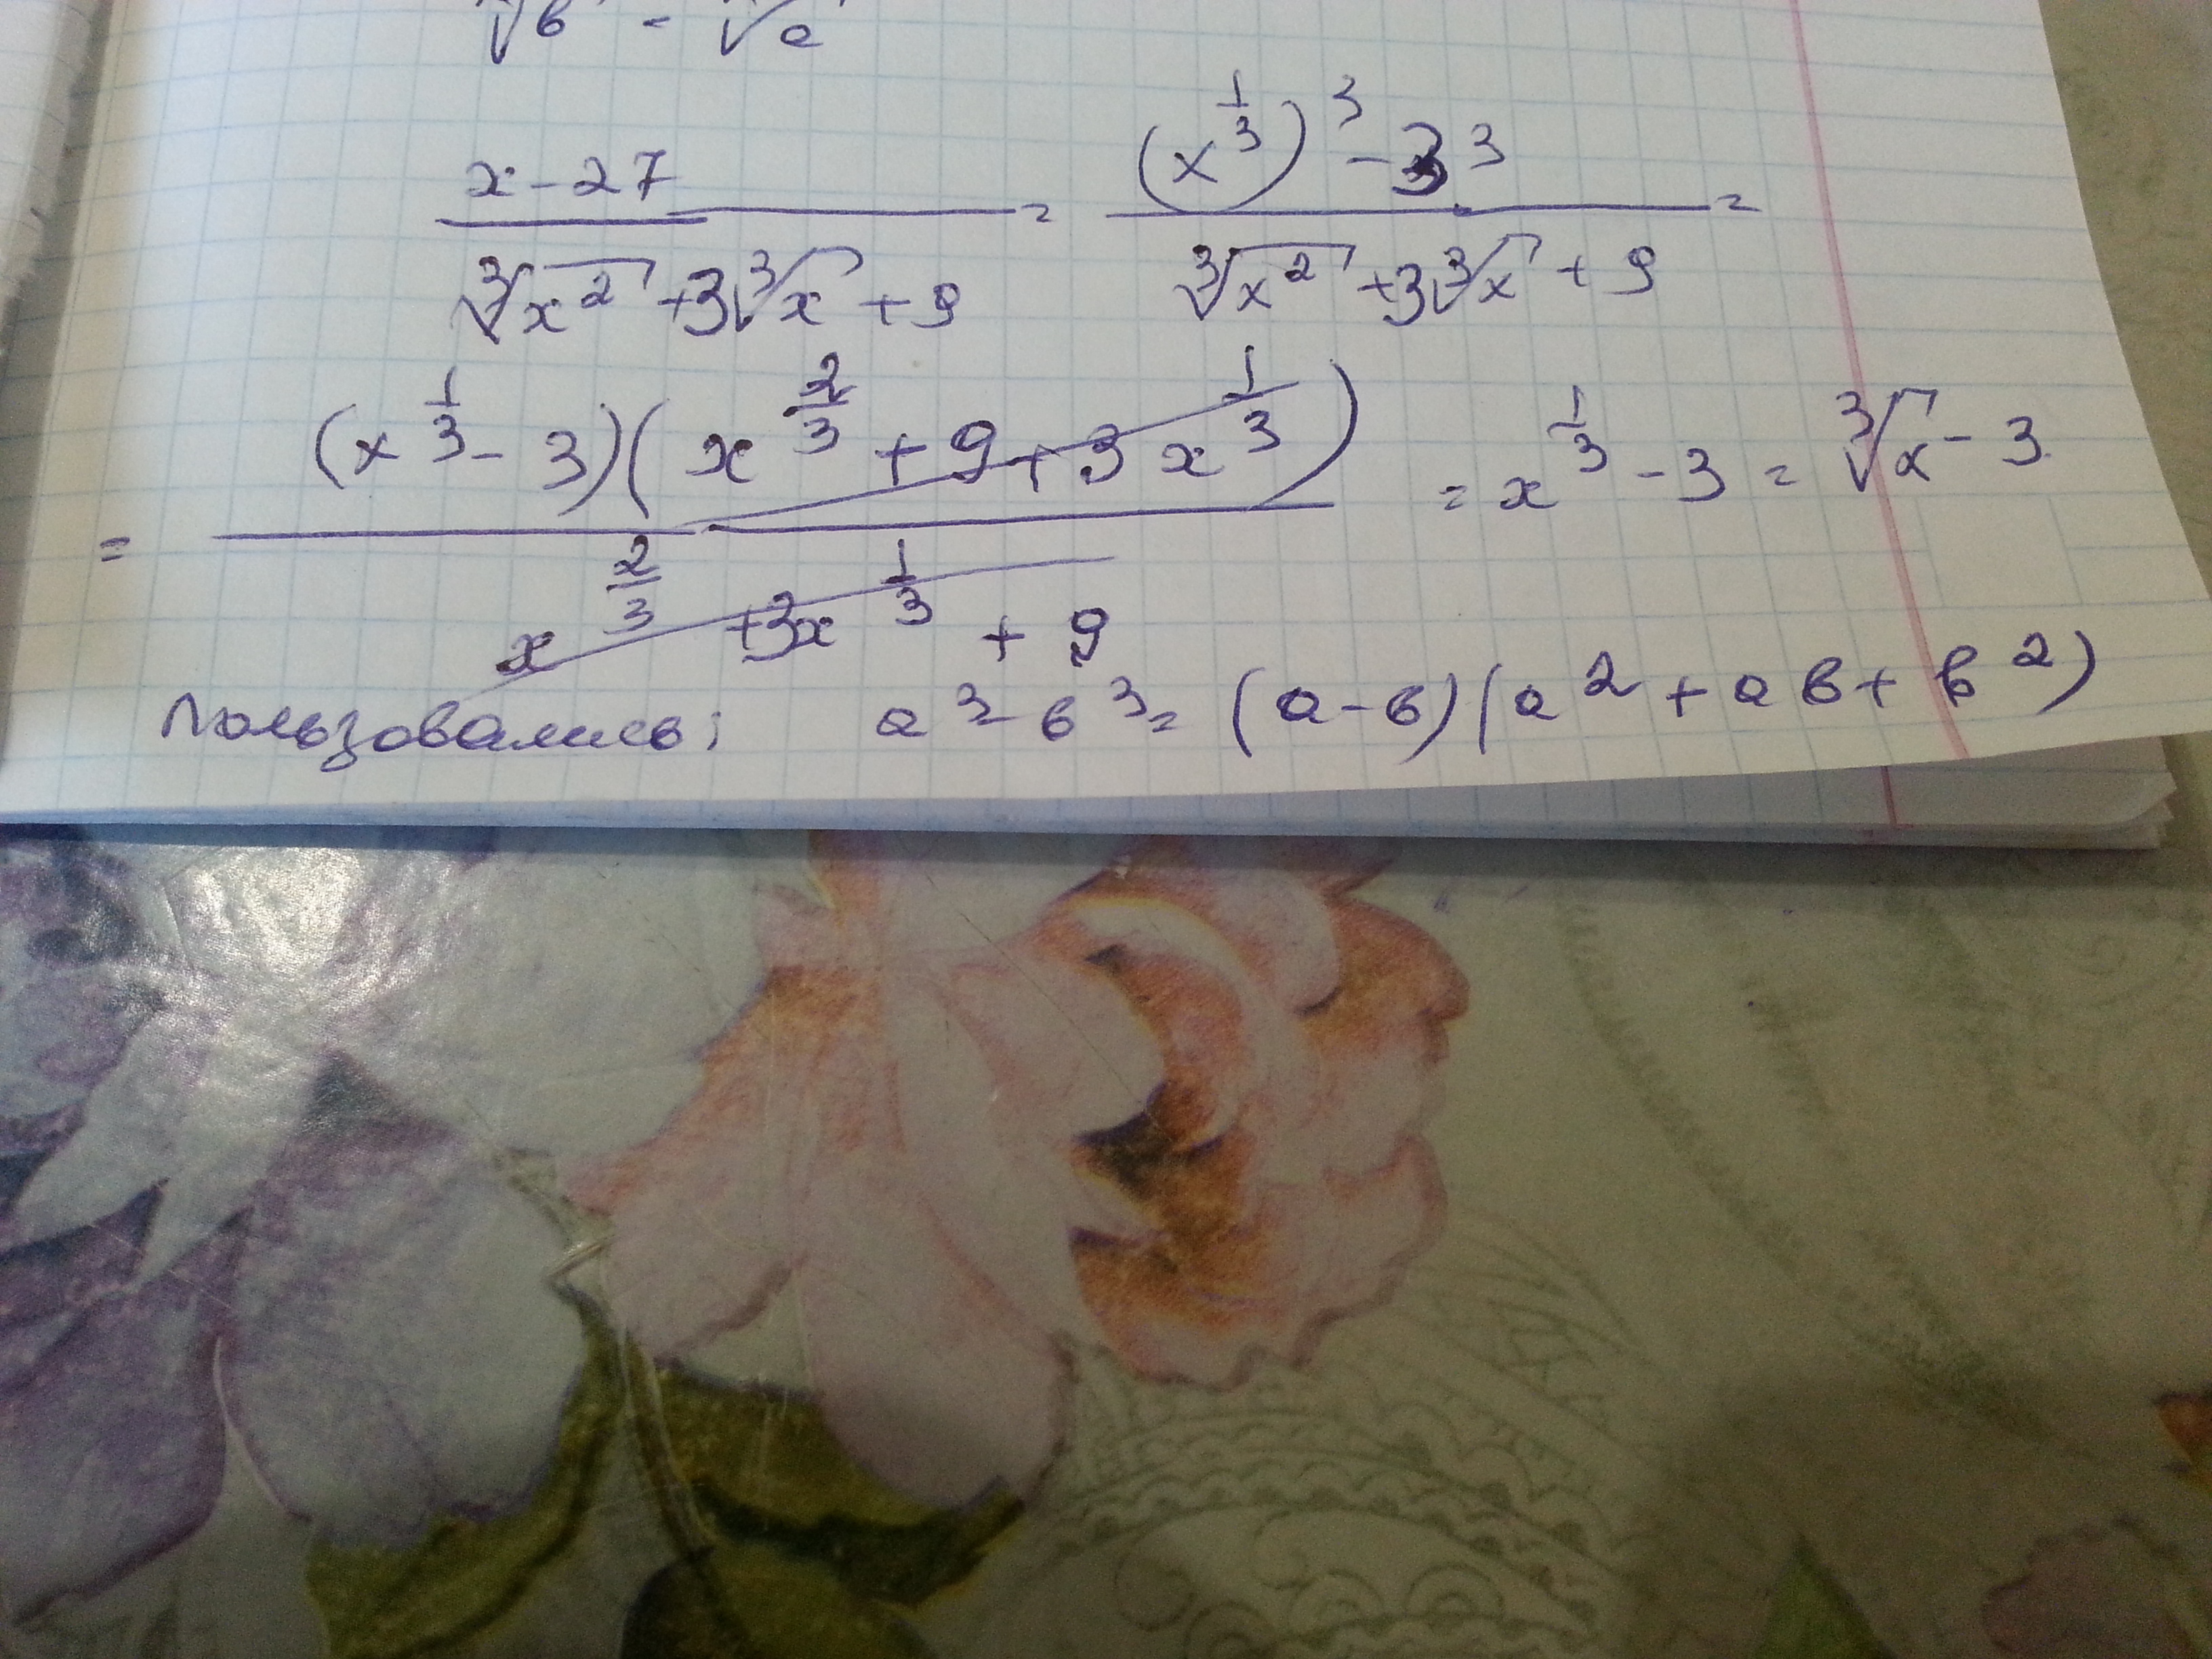 √b - √a
x-27 / (∛x² +3∛x +9) = ((x^(1/3))³ -3³) / (∛x² +3∛x +9) =
= (x^(1/3) - 3)(x^(2/3) + 9 + 3x^(1/3)) / (x^(2/3) +3x^(1/3) + 9) = x^(1/3) - 3 = ∛x - 3
Пользовались: a³-b³= (a-b)(a²+ab+b²)